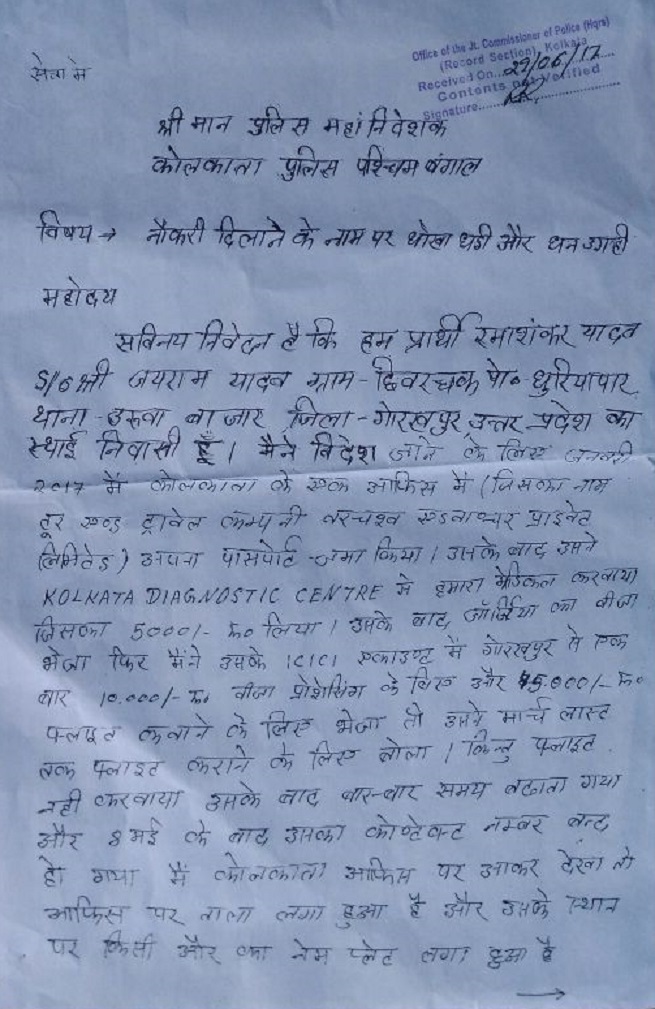 Office of the Jt. Commissioner of Police (Hqrs)
(Record Section), Kolkata
Received On...29/06/17...
Contents not Verified
Signature......
सेवा में
श्री मान पुलिस महानिदेशक
कोलकाता पुलिस पश्चिम बंगाल
विषय → नौकरी दिलाने के नाम पर धोखा धडी और धन उगाही
महोदय
सविनय निवेदन है कि हम प्रार्थी रमाशंकर यादव
S/o श्री जयराम यादव ग्राम - डिवरचक पो० धुरियापार
थाना - उरूवा बाजार जिला - गोरखपुर उत्तर प्रदेश का
स्थाई निवासी हूँ । मैने विदेश जाने के लिए जनवरी
2017 में कोलकाता के एक आफिस में (जिसका नाम
टूर एण्ड ट्रावेल कम्पनी प्राइवेट
लिमिटेड) अपना पासपोर्ट जमा किया । उसके बाद उसने
KOLKATA DIAGNOSTIC CENTRE मे हमारा मेडिकल करवाया
जिसका 5000/- रू० लिया । उसके बाद जॉर्जिया का वीजा
भेजा फिर मैंने उसके ICICI एकाउण्ट में गोरखपुर से एक
बार 10,000/- रू० वीजा प्रोशेसिंग के लिए और 45,000/- रू०
फ्लाइट करवाने के लिए भेजा तो उसने मार्च लास्ट
तक फ्लाइट कराने के लिए बोला । किन्तु फ्लाइट
नही करवाया उसके बाद बार-बार समय बढाता गया
और 8 मई के बाद उसका कोण्टेक्ट नम्बर बन्द
हो गया मैं कोलकाता आफिस पर आकर देखा तो
आफिस पर ताला लगा हुआ है और उसके स्थान
पर किसी और का नेम प्लेट लगा हुआ है
→